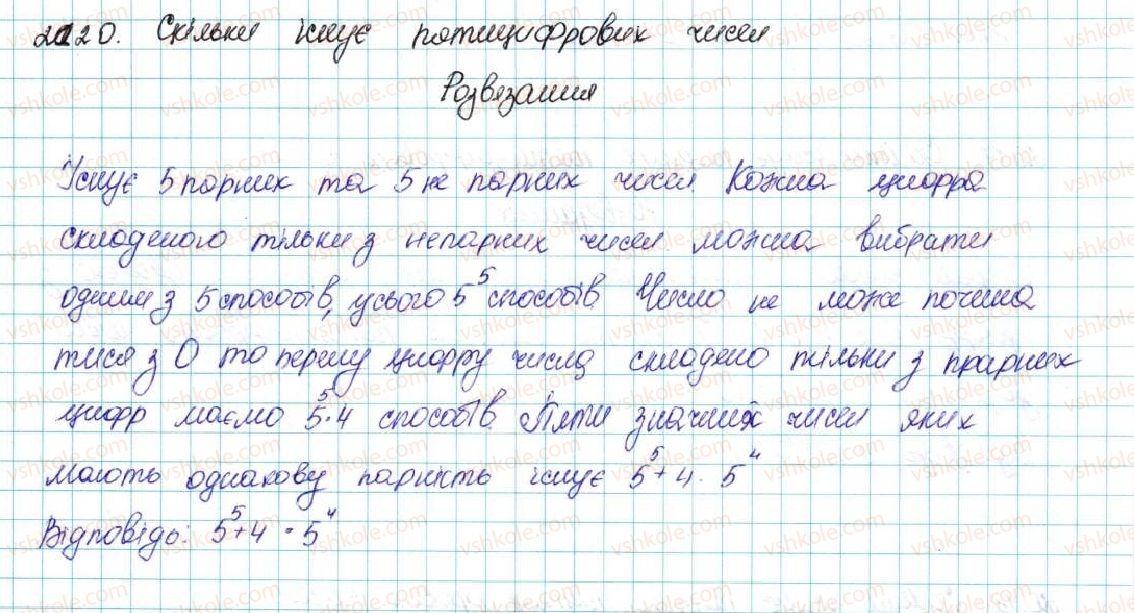 20120. Скільки існує пятицифрових чисел
Розвязання
Існує 5 парних та 5 не парних чисел. Кожна цифра
складеного тільки з непарних чисел можна вибрати
одним з 5 способів, усього 5⁵ способів. Число не може почина
тися з 0 то першу цифру числа складено тільки з прарних
цифр маємо 5⁵·4 способів. Пяти значних чисел яких
мають однакову парність існує 5⁵ + 4 · 5⁴
Відповідь: 5⁵ + 4 · 5⁴